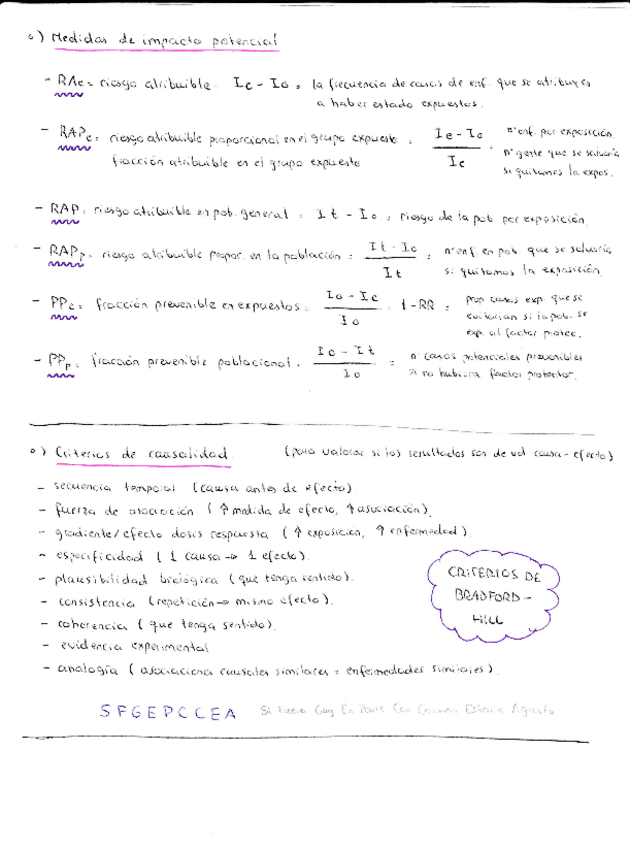 o) Medidas de impacto potencial
- RAe = riesgo atribuible. Ie - Io = la frecuencia de casos de enf. que se atribuyen
a haber estado expuestos.
- RAPe = riesgo atribuible proporcional en el grupo expuesto = Ie - Io / Ie = nº enf. por exposición.
fracción atribuible en el grupo expuesto nº gente que se salvaría
si quitamos la expos.
- RAP = riesgo atribuible en pob. general = It - Io = riesgo de la pob por exposición.
- RAPp = riesgo atribuible propor. en la población = It - Io / It = nº enf. en pob que se salvaría
si quitamos la exposición.
- PPe = fracción prevenible en expuestos = Io - Ie / Io = 1 - RR = prop casos exp. que se
evitarían si la pob. se
exp. al factor protec.
- PPp = fracción prevenible poblacional. Io - It / Io = n casos potenciales prevenibles
si no hubiera factor protector.
o) Criterios de causalidad. (para valorar si los resultados son de causa - efecto)
- secuencia temporal (causa antes de efecto)
- fuerza de asociación (↑ medida de efecto, ↑ asociación).
- gradiente/efecto dosis respuesta (↑ exposición, ↑ enfermedad).
- especificidad (1 causa → 1 efecto).
- plausibilidad biológica (que tenga sentido).
- consistencia (repetición → mismo efecto).
- coherencia (que tenga sentido).
- evidencia experimental
- analogía (asociaciona causales similares = enfermedades similares).
CRITERIOS DE
BRADFORD -
HILL
SFGEPCCEA Si Gay En Con Carmen Agosto